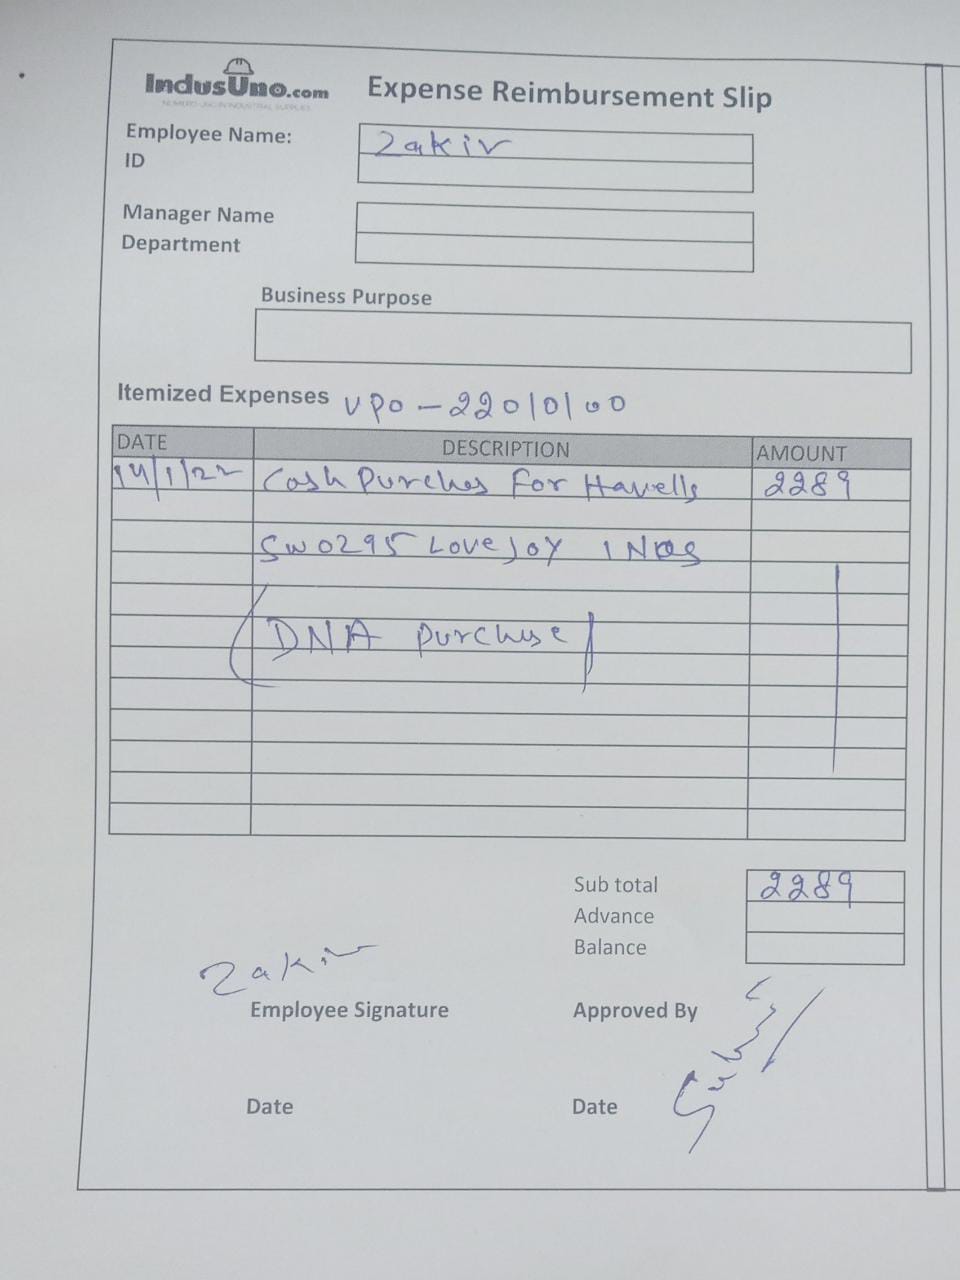 IndusUno.com
NUMERO UNO IN INDUSTRIAL SUPPLIES
Expense Reimbursement Slip
Employee Name: Zakir
ID
Manager Name
Department
Business Purpose
Itemized Expenses VPO-22010100
DATE DESCRIPTION AMOUNT
14/1/22 Cash Purches For Havells 2289
SW0295 LoveJoy 1 Nos
(DNA Purchase)
Sub total 2289
Advance
Balance
Zakir
Employee Signature Approved By
Date Date